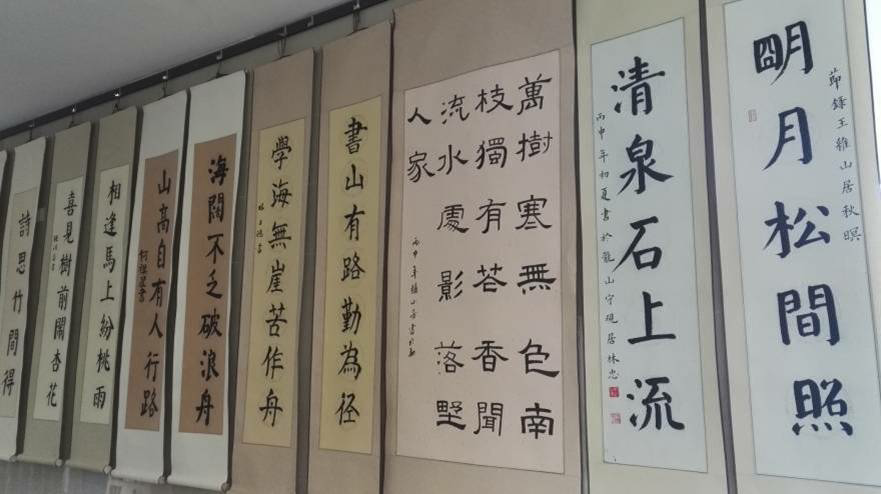 朙月松間照
莭錄王維山居秋暝
清泉石上流
丙申年初夏書於龍山守硯居林忠
萬樹寒無色南
枝獨有花香聞
流水處影落墅
人家
丙申年
書山有路勤為径
學海無崖苦作舟
海闊不乏破浪舟
山高自有人行路
相逢馬上紛桃雨
喜見樹前鬧杏花
詩思竹間得